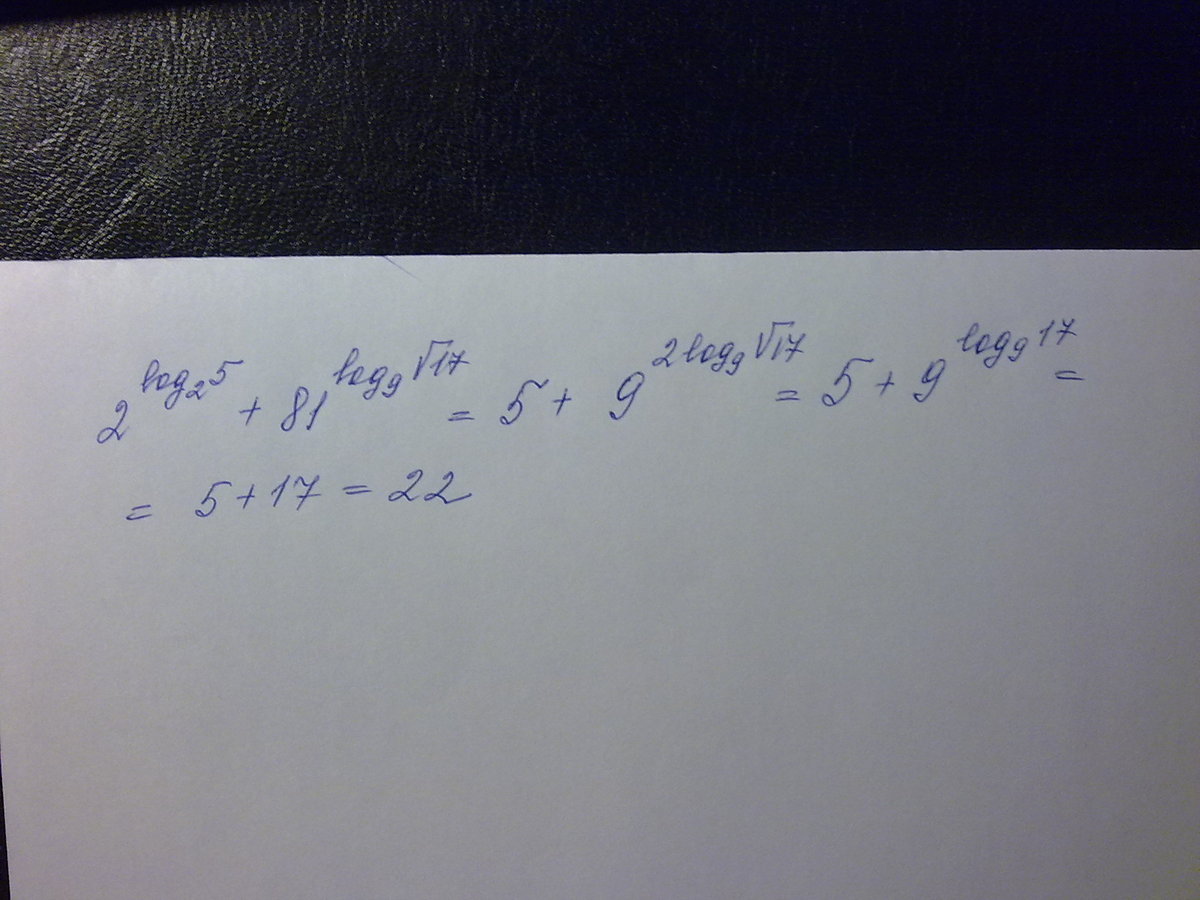 2^{log_2 5} + 81^{log_9 √17} = 5 + 9^{2log_9 √17} = 5 + 9^{log_9 17} =
= 5 + 17 = 22